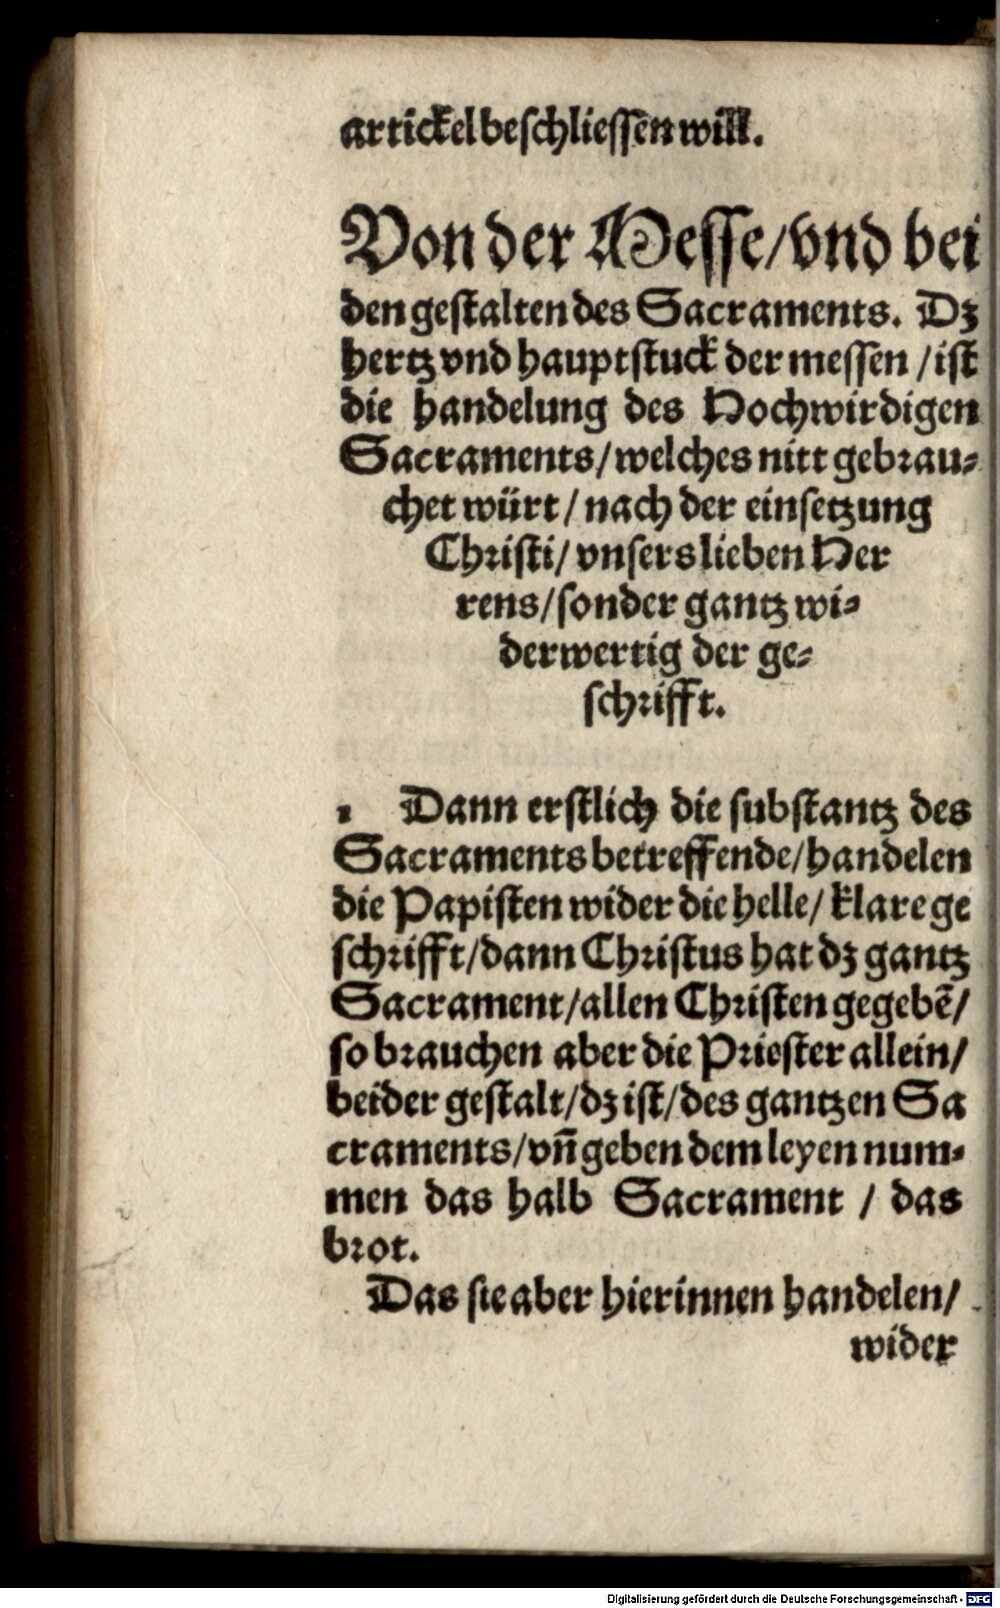 artickel beschliessen will.
Von der Messe/vnd bei
den gestalten des Sacraments. Dz
hertz vnd hauptstuck der messen /ist
die handelung des Hochwirdigen
Sacraments/welches nitt gebrau-
chet würt/nach der einsetzung
Christi/vnsers lieben Her
rens/sonder gantz wi-
derwertig der ge-
schrifft.
1 Dann erstlich die substantz des
Sacraments betreffende/handelen
die Papisten wider die helle/klare ge
schrifft/dann Christus hat dz gantz
Sacrament/allen Christen gegebē/
so brauchen aber die Priester allein/
beider gestalt/dz ist/des gantzen Sa
craments/vñ geben dem leyen num-
men das halb Sacrament / das
brot.
Das sie aber hierinnen handelen/
wider
Digitalisierung gefördert durch die Deutsche Forschungsgemeinschaft - DFG